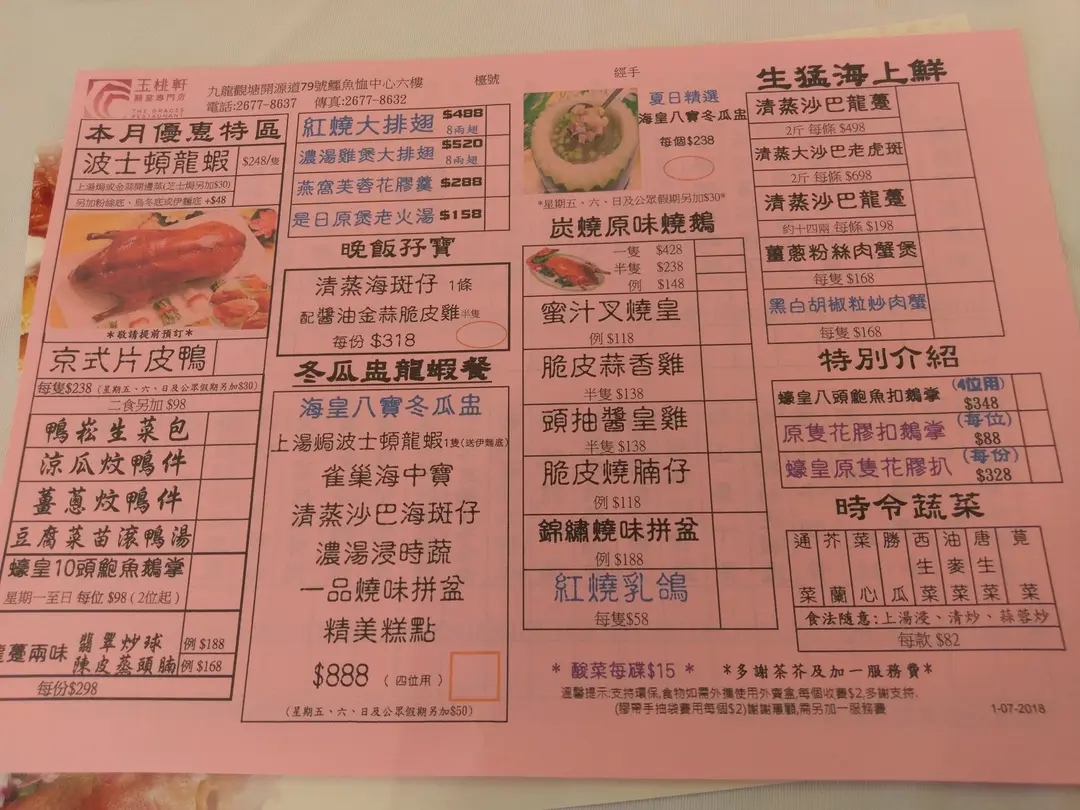 玉桃軒
關當專門店
THE GRACES
RESTAURANT
九龍觀塘開源道79號鱷魚恤中心六樓
電話:2677-8637 傳真:2677-8632
檯號
經手
本月優惠特區
波士頓龍蝦 $248/隻
上湯焗或金蒜開邊蒸(芝士焗另加$30)
另加粉絲底、烏冬底或伊麵底 +$48
*敬請提前預訂*
京式片皮鴨
每隻$238 (星期五、六、日及公眾假期另加$30)
二食另加 $98
鴨崧生菜包
涼瓜炆鴨件
薑蔥炆鴨件
豆腐菜苗滾鴨湯
蠔皇10頭鮑魚鵝掌
星期一至日 每位 $98 ( 2位起 )
龍躉兩味
翡翠炒球 例 $188
陳皮蒸頭腩 例 $168
每份$298
紅燒大排翅 $488 8兩翅
濃湯雞煲大排翅 $520 8兩翅
燕窩芙蓉花膠羹 $288
是日原煲老火湯 $158
晚飯孖寶
清蒸海斑仔 1條
配醬油金蒜脆皮雞 半隻
每份 $318
冬瓜盅龍蝦餐
海皇八寶冬瓜盅
上湯焗波士頓龍蝦1隻(送伊麵底)
雀巢海中寶
清蒸沙巴海斑仔
濃湯浸時蔬
一品燒味拼盆
精美糕點
$888 ( 四位用 )
(星期五、六、日及公眾假期另加$50)
夏日精選
海皇八寶冬瓜盅
每個$238
*星期五、六、日及公眾假期另加$30*
炭燒原味燒鵝
一隻 $428
半隻 $238
例 $148
蜜汁叉燒皇
例 $118
脆皮蒜香雞
半隻 $138
頭抽醬皇雞
半隻 $138
脆皮燒腩仔
例 $118
錦繡燒味拼盆
例 $188
紅燒乳鴿
每隻$58
生猛海上鮮
清蒸沙巴龍躉
2斤 每條 $498
清蒸大沙巴老虎斑
2斤 每條 $698
清蒸沙巴龍躉
約十四兩 每條 $198
薑蔥粉絲肉蟹煲
每隻 $168
黑白胡椒粒炒肉蟹
每隻 $168
特別介紹
蠔皇八頭鮑魚扣鵝掌 (4位用) $348
原隻花膠扣鵝掌 (每位) $88
蠔皇原隻花膠扒 (每份) $328
時令蔬菜
通菜 芥蘭 菜心 勝瓜 西生菜 油麥菜 唐生菜 莧菜
食法隨意:上湯浸、清炒、蒜蓉炒
每款 $82
* 酸菜每碟$15 * *多謝茶芥及加一服務費*
溫馨提示:支持環保,食物如需外攜使用外賣盒,每個收費$2,多謝支持.
(膠帶手抽袋費用每個$2)謝謝惠顧,需另加一服務費
1-07-2018